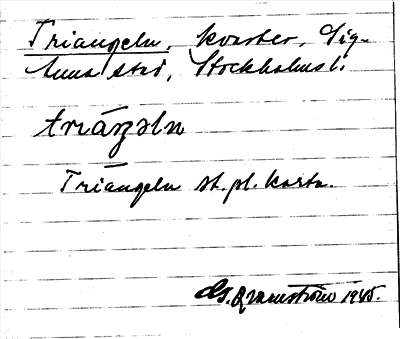 Triangeln, kvarter, Sig-
tuna stad, Stockholms l.
triáŋəln
Triangeln st.pl. karta.
G. Qvarnström 1945.